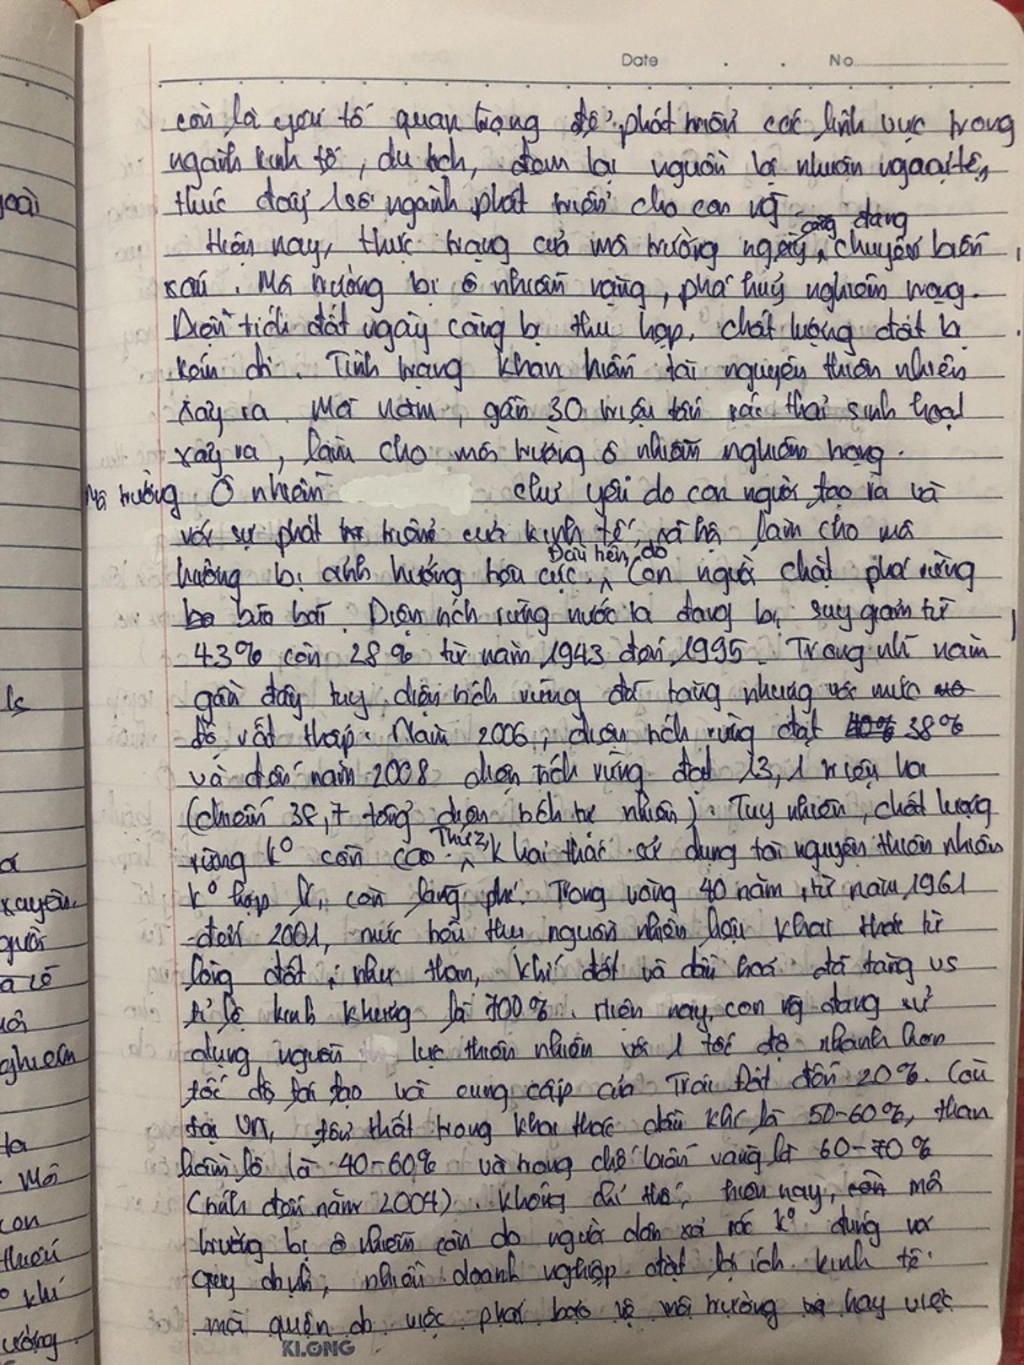 Date . . No
còn là yếu tố quan trọng để phát triển các lĩnh vực trong
ngành kinh tế, du lịch, đem lại nguồn lợi nhuận ngoại tệ,
thúc đẩy 1 số ngành phát triển cho con ng
Hiện nay, thực trạng của môi trường ngày càng đang chuyển biến
xấu. Môi trường bị ô nhiễm nặng, phá huỷ nghiêm trọng.
Diện tích đất ngày càng bị thu hẹp, chất lượng đất bị
kém đi. Tình trạng khan hiếm tài nguyên thiên nhiên
xảy ra. Mỗi năm, gần 30 triệu tấn rác thải sinh hoạt
xảy ra, làm cho môi trường ô nhiễm nghiêm trọng.
Ô nhiễm môi trường chủ yếu do con người tạo ra và
với sự phát triển của kinh tế, xã hội làm cho môi
trường bị ảnh hưởng tiêu cực. Đầu tiên, do con người chặt phá rừng
bừa bãi. Diện tích rừng nước ta đang bị suy giảm từ
43% còn 28% từ năm 1943 đến 1995. Trong những năm
gần đây tuy diện tích rừng đã tăng nhưng mức
độ vẫn thấp. Năm 2006, diện tích rừng đạt 38%
và đến năm 2008 diện tích rừng đạt 13,1 triệu ha
(chiếm 38,7 tổng diện tích tự nhiên). Tuy nhiên, chất lượng
rừng k° còn cao. Thứ 2, khai thác sử dụng tài nguyên thiên nhiên
k° hợp lí, còn lãng phí. Trong vòng 40 năm, từ năm 1961
đến 2001, mức tiêu thụ nguồn nhiên liệu khai thác từ
lòng đất, như than, khí đốt và dầu hoả đã tăng vs
tỉ lệ kinh khủng là 700%. Hiện nay, con ng đang sử
dụng nguồn lực thiên nhiên với 1 tốc độ nhanh hơn
tốc độ tái tạo và cung cấp của Trái Đất đến 20%. Còn
tại VN, tổn thất trong khai thác dầu khí là 50-60%, than
hầm lò là 40-60% và trong chế biến vàng là 60-70%
(tính đến năm 2004). Không chỉ thế, hiện nay, môi
trường bị ô nhiễm còn do người dân xả rác k° đúng nơi
quy định, nhiều doanh nghiệp đặt lợi ích kinh tế
mà quên đi việc phải bảo vệ môi trường hay việc
KLONG